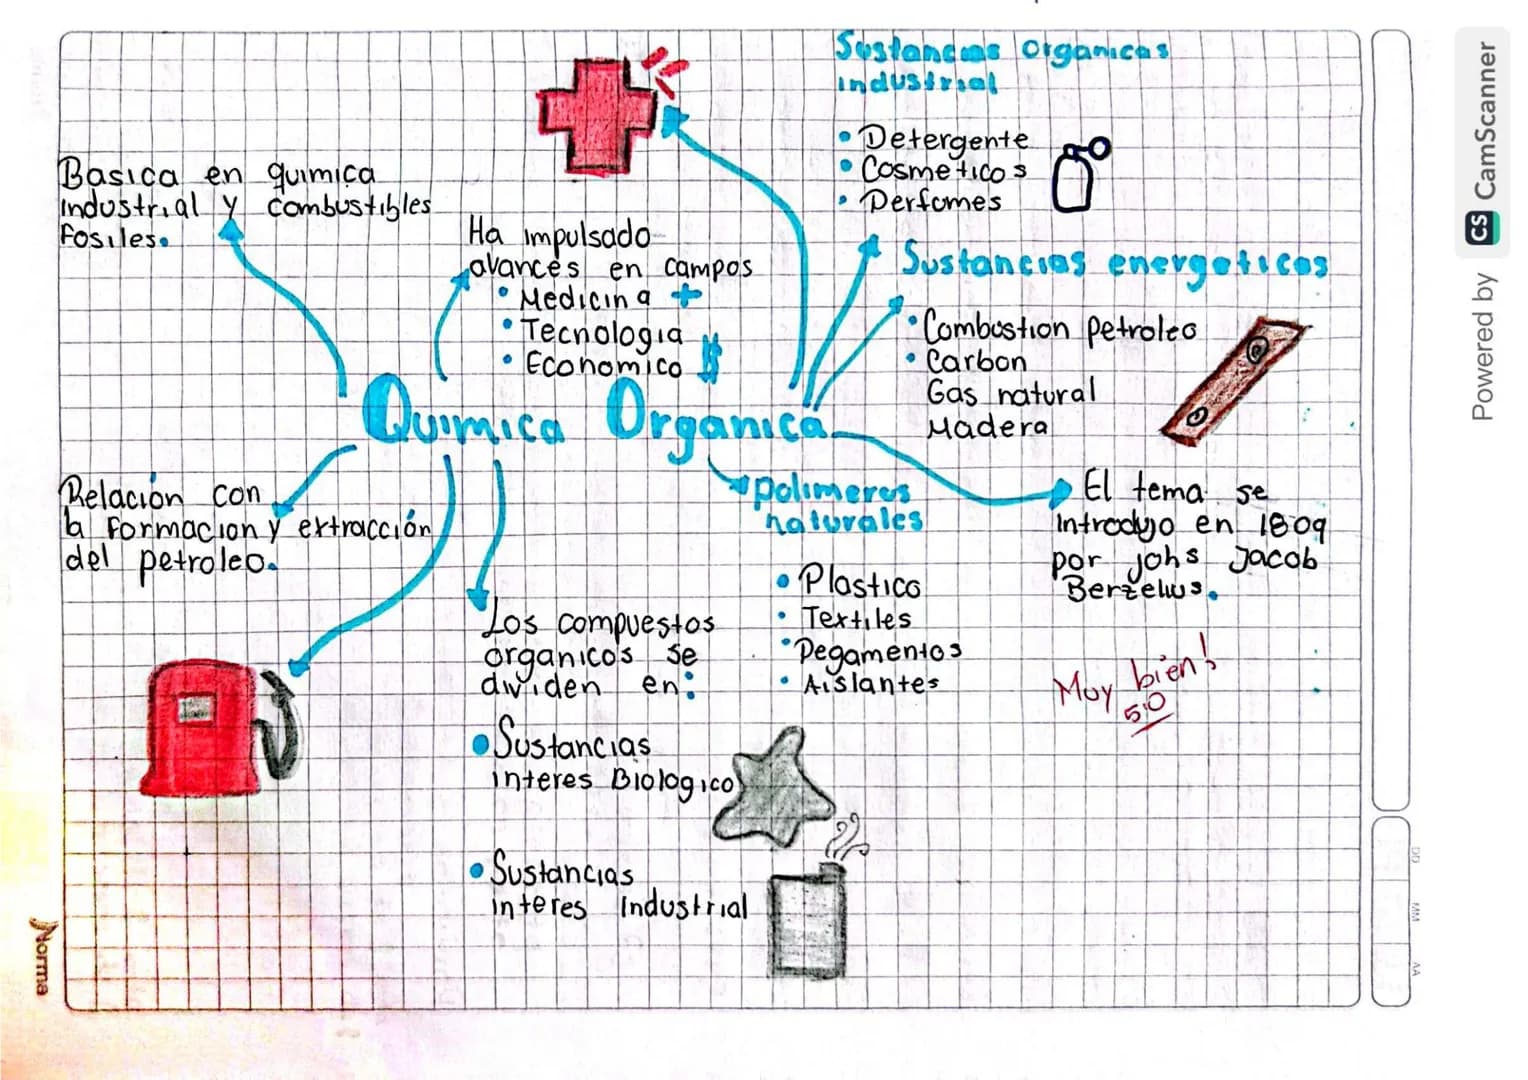 Sustancias Organicas
industrial
• Detergente
• Cosmeticos
• Perfumes
Basica en quimica
industrial y combustibles
Fosiles.
Ha impulsado
avances en campos
• Medicina +
• Tecnologia
• Economico $
Sustancias energeticas
• Combustion petroleo
• Carbon
Gas natural
Madera
Quimica Organica
Relación con
la formacion y extracción
del petroleo.
polimeros
naturales
• Plastico
• Textiles
• Pegamentos
• Aislantes
El tema se
introdujo en 1809
por johs Jacob
Berzelius.
Muy bien!
5.0
Los compuestos
organicos se
dividen en:
• Sustancias
interes Biologico
• Sustancias
interes industrial
Norma
DD MM AA
Powered by CS CamScanner